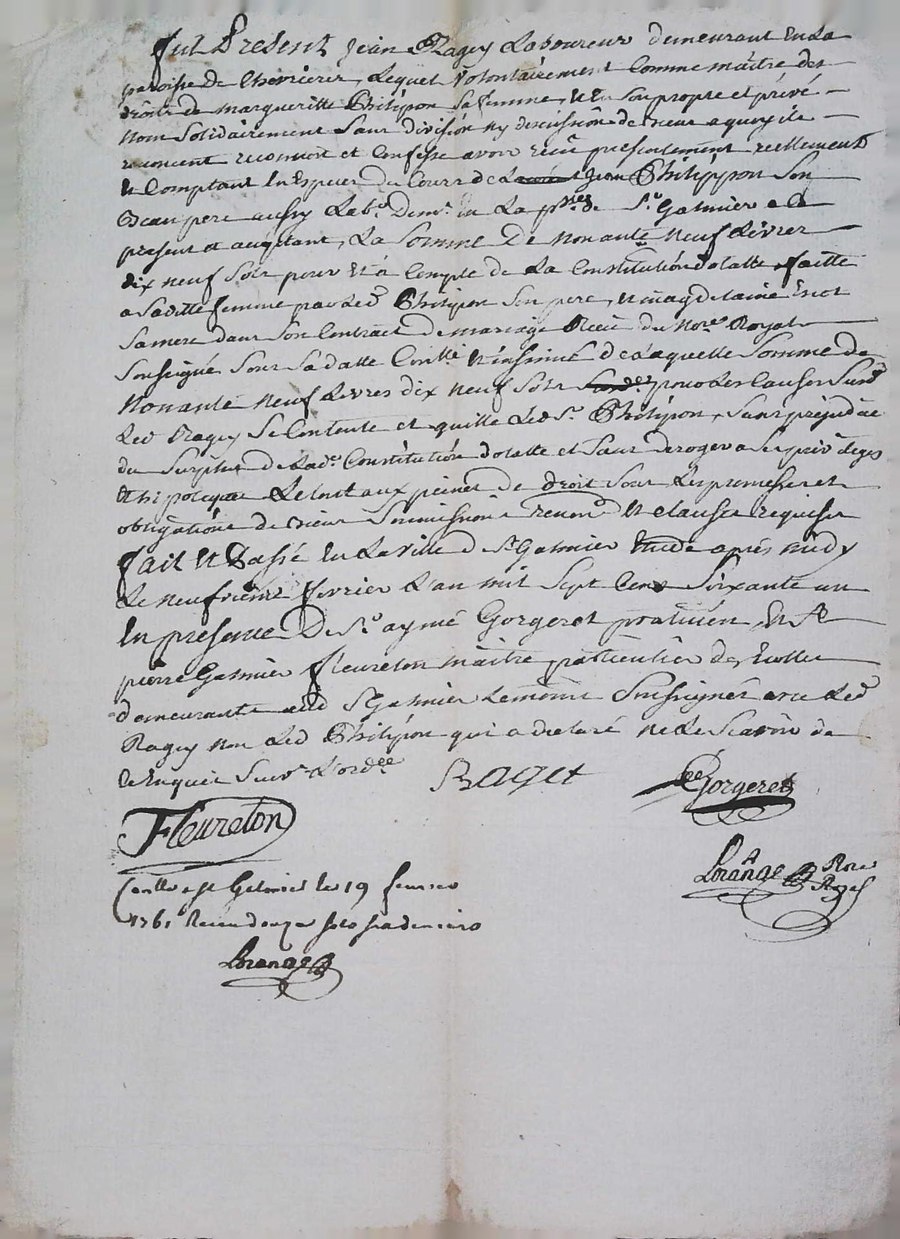 Fut Present Jean Ragey Laboureur demeurant En La
paroisse de Chevrieres, Lequel Volontairement Comme maitre des
droits de margueritte Philipon sa femme, et En son propre et privé
Nom Solidairement Sans division ny discussion de biens a quoy ils
renoncent reconnoit et Confesse avoir reçu presentement reellement
et Comptant En Especes du Cours de Jean Philippon Son
Beau pere aussy Lab.r Dem.t En La p.sse de St Galmier a ce
present et acceptant, La Somme De Nonante Neuf Livres
dix neuf Sols pour et à Compte de La Constitution dotalle faitte
a Saditte femme par Led.t Philipon Son pere, et magdelaine
Sa mere dans Son Contract de mariage Reçu du No.re Royal
Soussigné Sous Sa datte Con.llé et insinué de Laquelle Somme de
Nonante Neuf Livres dix neuf Sols pour Les Causes Susd.
Led Ragey Se Contente et quitte Led Sr Philipon, Sans prejudice
du Surplus de Lad.e Constitution dotalle et Sans deroger a Ses privileges
et hipoteque Le tout aux peines de droit Sous Les promesses et
obligations de biens Soumissions renon.on et clauses requises
fait et Passé En La ville de St Galmier Etude après midy
Le neufvieme fevrier L'an mil Sept Cens Soixante un
En presence De Sr aymé Gorgeret praticien, Et Sr
pierre Galmier fleureton maitre particulier des Ecolles
demeurants aud St Galmier Lesmoins Soussignés avec Led
Ragey non Led Philipon qui a declaré ne Le Scavoir de
ce Enquis Suiv.t L'ord.ce Raget Gorgeret
Fleureton
Lorange No.re Royal
Con.llé a St Galmier le 19 fevrier
1761 Recu douze sols six deniers
Lorange